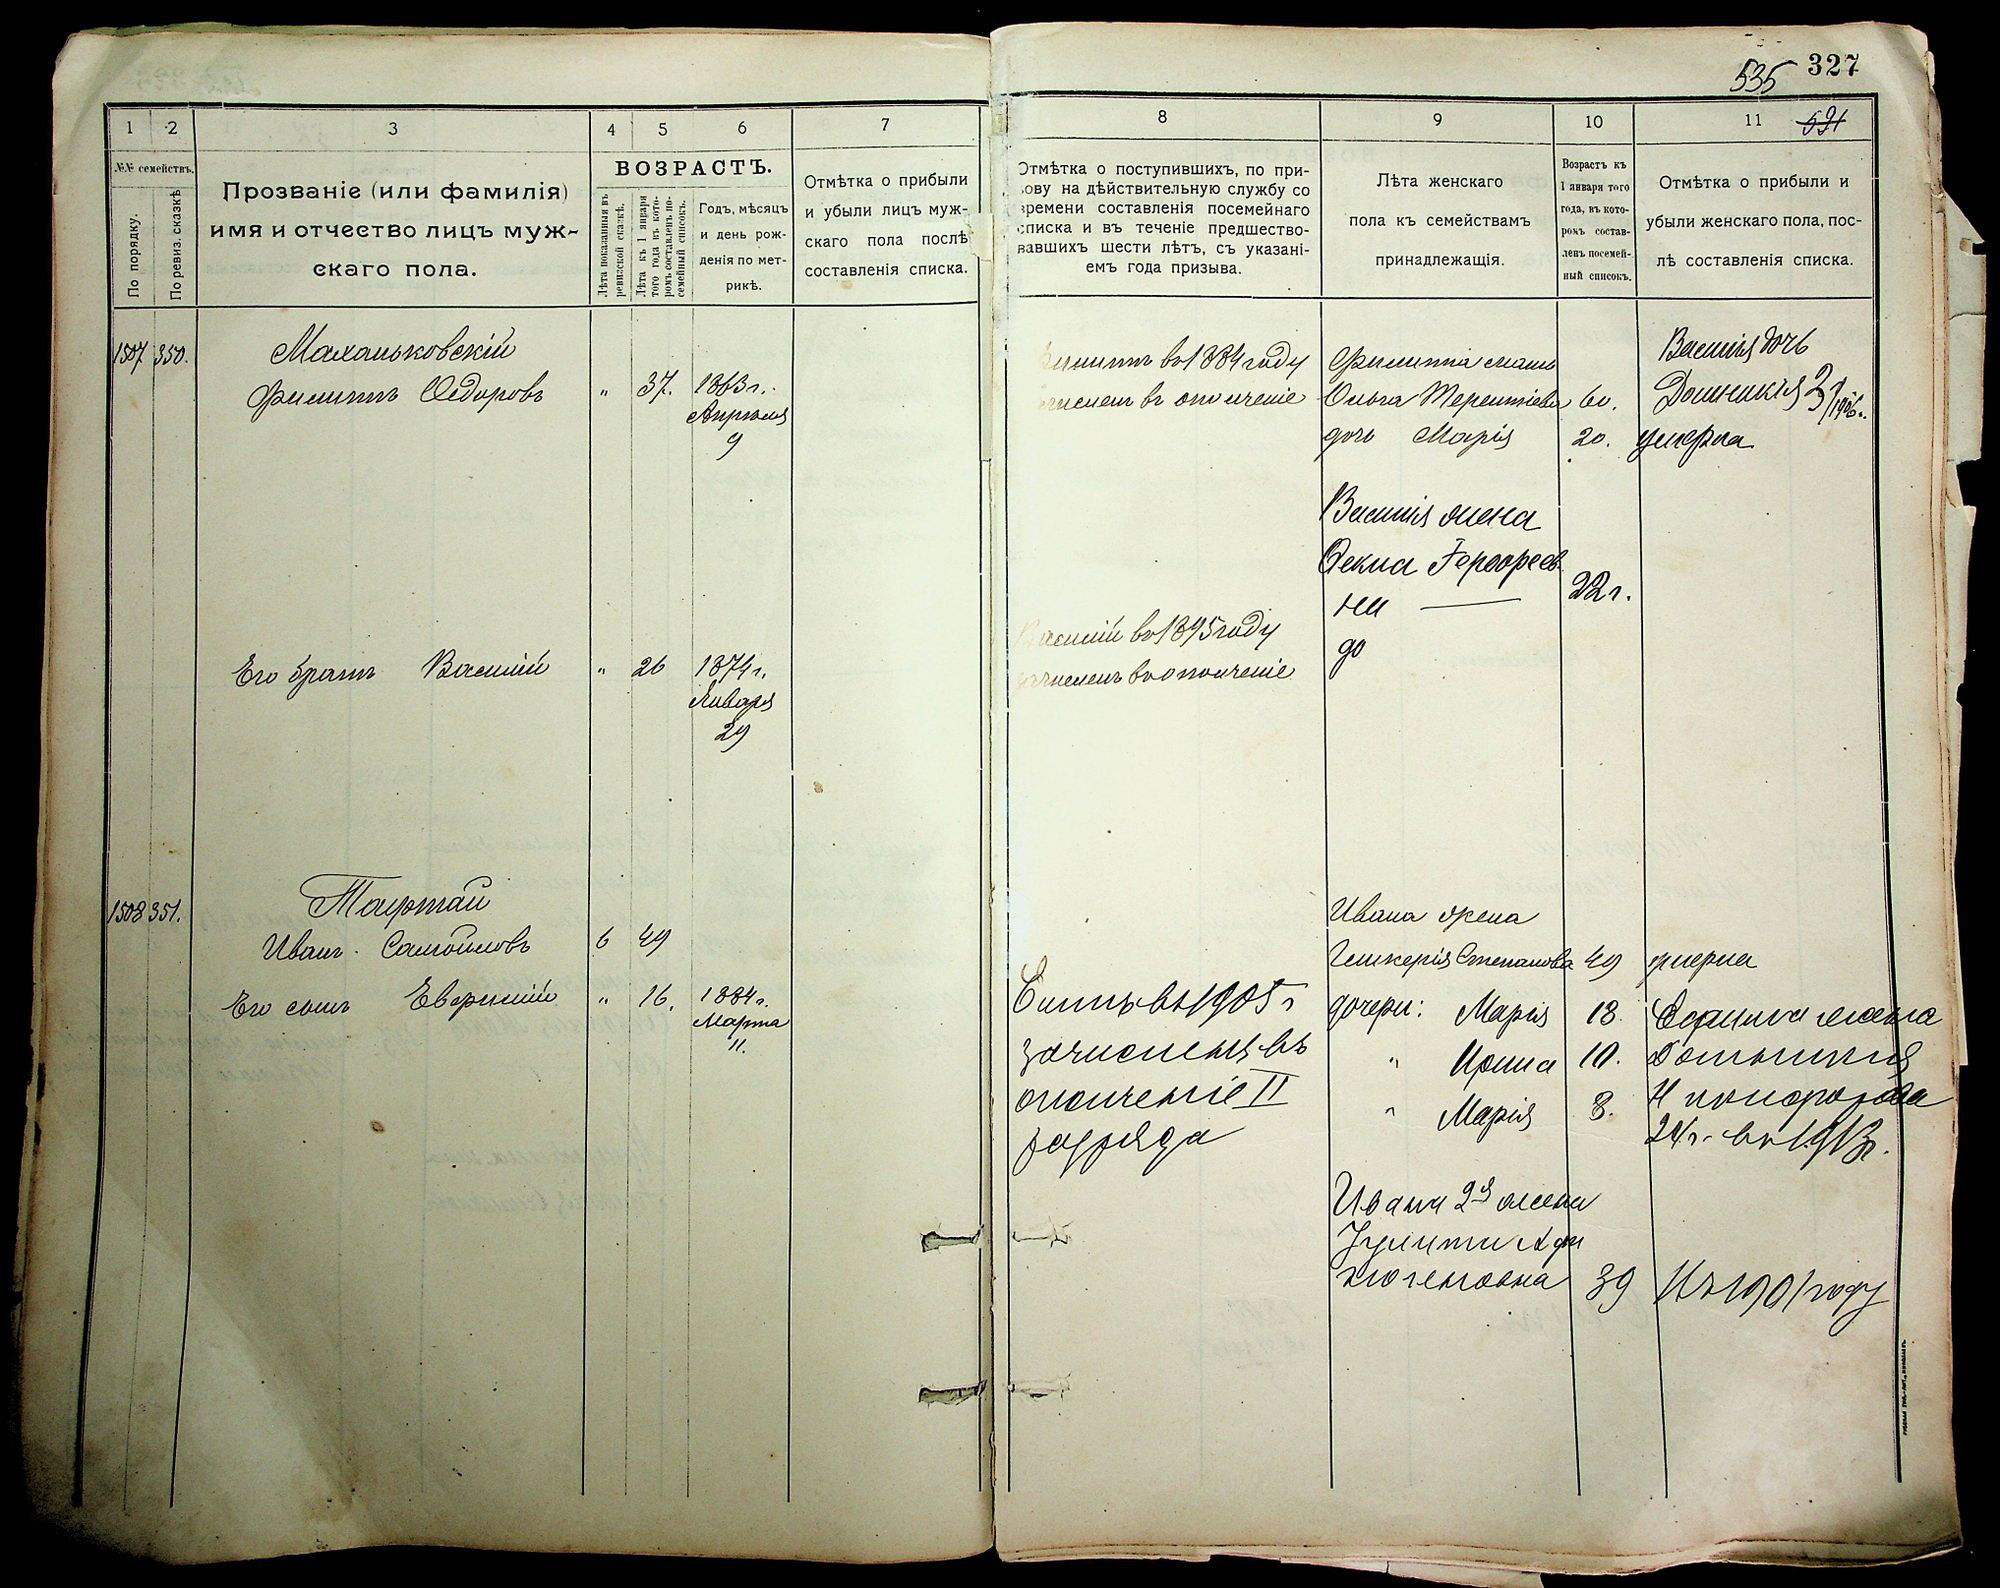 327
535
591
1
2
3
4
5
6
7
№№ семействъ.
По порядку.
По ревиз. сказкѣ
Прозваніе (или фамилія)
имя и отчество лицъ муж-
скаго пола.
ВОЗРАСТЪ.
Лѣта показанныя въ
ревизской сказкѣ.
Лѣта къ 1 января
того года въ кото-
ромъ составленъ по-
семейный списокъ.
Годъ, мѣсяцъ
и день рож-
денія по мет-
рикѣ.
Отмѣтка о прибыли
и убыли лицъ муж-
скаго пола послѣ
составленія списка.
1507 350.
Маханьковскій
Филиппъ Ѳедоровъ " 37. 1863 г.
Апрѣля
9
Его братъ Василій " 26 1874 г.
Января
29
1508 351.
Таргтай
Иванъ Самойловъ 6 49
Его сынъ Евфимій " 16. 1884 г.
Марта
11.
8
9
10
11
Отмѣтка о поступившихъ, по при-
зову на дѣйствительную службу со
времени составленія посемейнаго
списка и въ теченіе предшество-
вавшихъ шести лѣтъ, съ указані-
емъ года призыва.
Лѣта женскаго
пола къ семействамъ
принадлежащія.
Возрастъ къ
1 января того
года, въ кото-
ромъ состав-
ленъ посемей-
ный списокъ.
Отмѣтка о прибыли и
убыли женскаго пола, пос-
лѣ составленія списка.
Филиппъ въ 1884 году
зачисленъ въ ополченіе
Филиппа мать
Ольга Терентіева 60.
дочь Марія 20. умерла
Василія дочь
Василія жена
Ѳекла
на 22 г.
до
Василій въ 1895 году
зачисленъ въ ополченіе
Ивана жена
Гликерія Степанова 49 умерла
дочери: Марія 18.
" Ирина 10.
" Марія 8.
въ 1905 г
зачисленъ въ
ополченіе II
разряда
Евфимія жена
Никифорова
24 г. въ 1913 г.
Ивана 2я жена
39 въ 1901 году